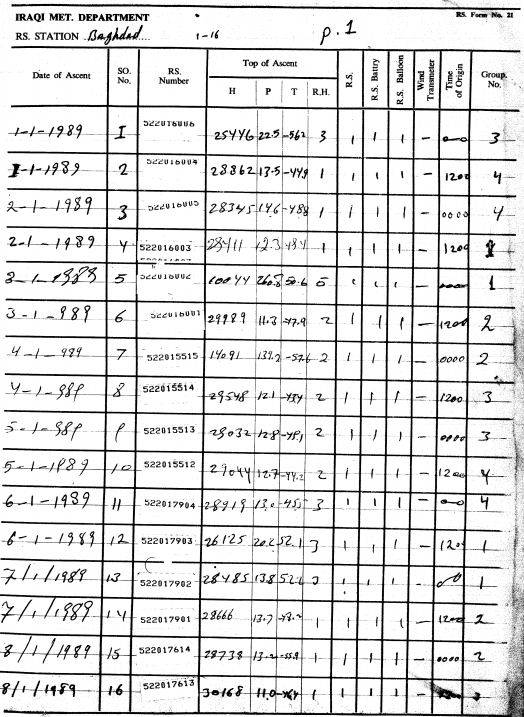 IRAQI MET. DEPARTMENT RS. Form No. 21
RS. STATION Baghdad 1-16 p. 1
Date of Ascent SO. No. RS. Number Top of Ascent R.S. R.S. Battry R.S. Balloon Wind Transmeter Time of Origin Group. No.
H P T R.H.
1-1-1989 I 522016006 25446 22.5 -562 3 1 1 1 - 3
1-1-1989 2 522016004 28862 13.5 -449 1 1 1 1 - 1200 4
2-1-1989 3 522016005 28345 14.6 -488 1 1 1 1 - 0000 4
2-1-1989 4 522016003 12.3 1 1 1 1 - 1200
5 522016002 10044 5 1 1 1 - 1
3-1-989 6 522016001 29989 11.3 -47.9 2 1 1 1 - 1200 2
4-1-989 7 522015515 14091 139.2 -57.6 2 1 1 1 - 0000 2
4-1-989 8 522015514 29548 12.1 2 1 1 1 - 1200 3
5-1-989 9 522015513 29032 12.8 2 1 1 1 - 0000 3
5-1-1989 10 522015512 29044 12.7 -44.2 2 1 1 1 - 1200 4
6-1-1989 11 522017904 28919 13.0 3 1 1 1 - 4
6-1-1989 12 522017903 26125 20.2 52.1 3 1 1 1 - 1200 1
7/1/1989 13 522017902 28485 13.8 3 1 1 1 - 1
7/1/1989 14 522017901 28666 13.7 1 1 1 1 - 1200 2
8/1/1989 15 522017614 28738 1 1 1 1 - 0000 2
8/1/1989 16 522017613 30168 11.0 1 1 1 1 -